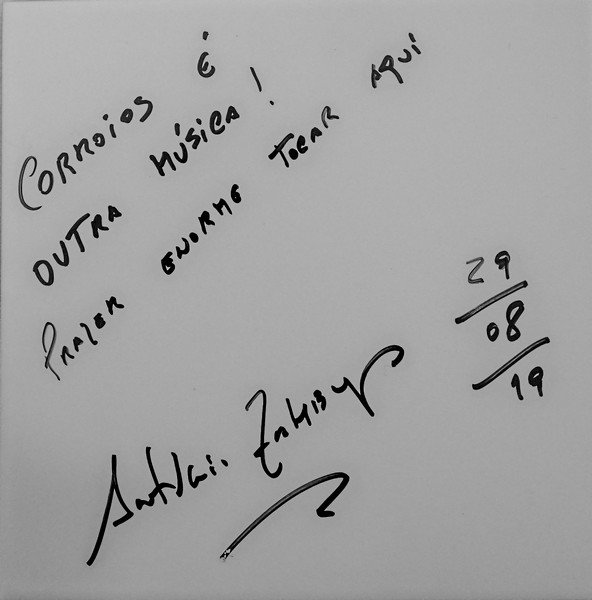 CORROIOS É
OUTRA MÚSICA!
PRAZER ENORME TOCAR AQUI
29
08
19
António Zambujo